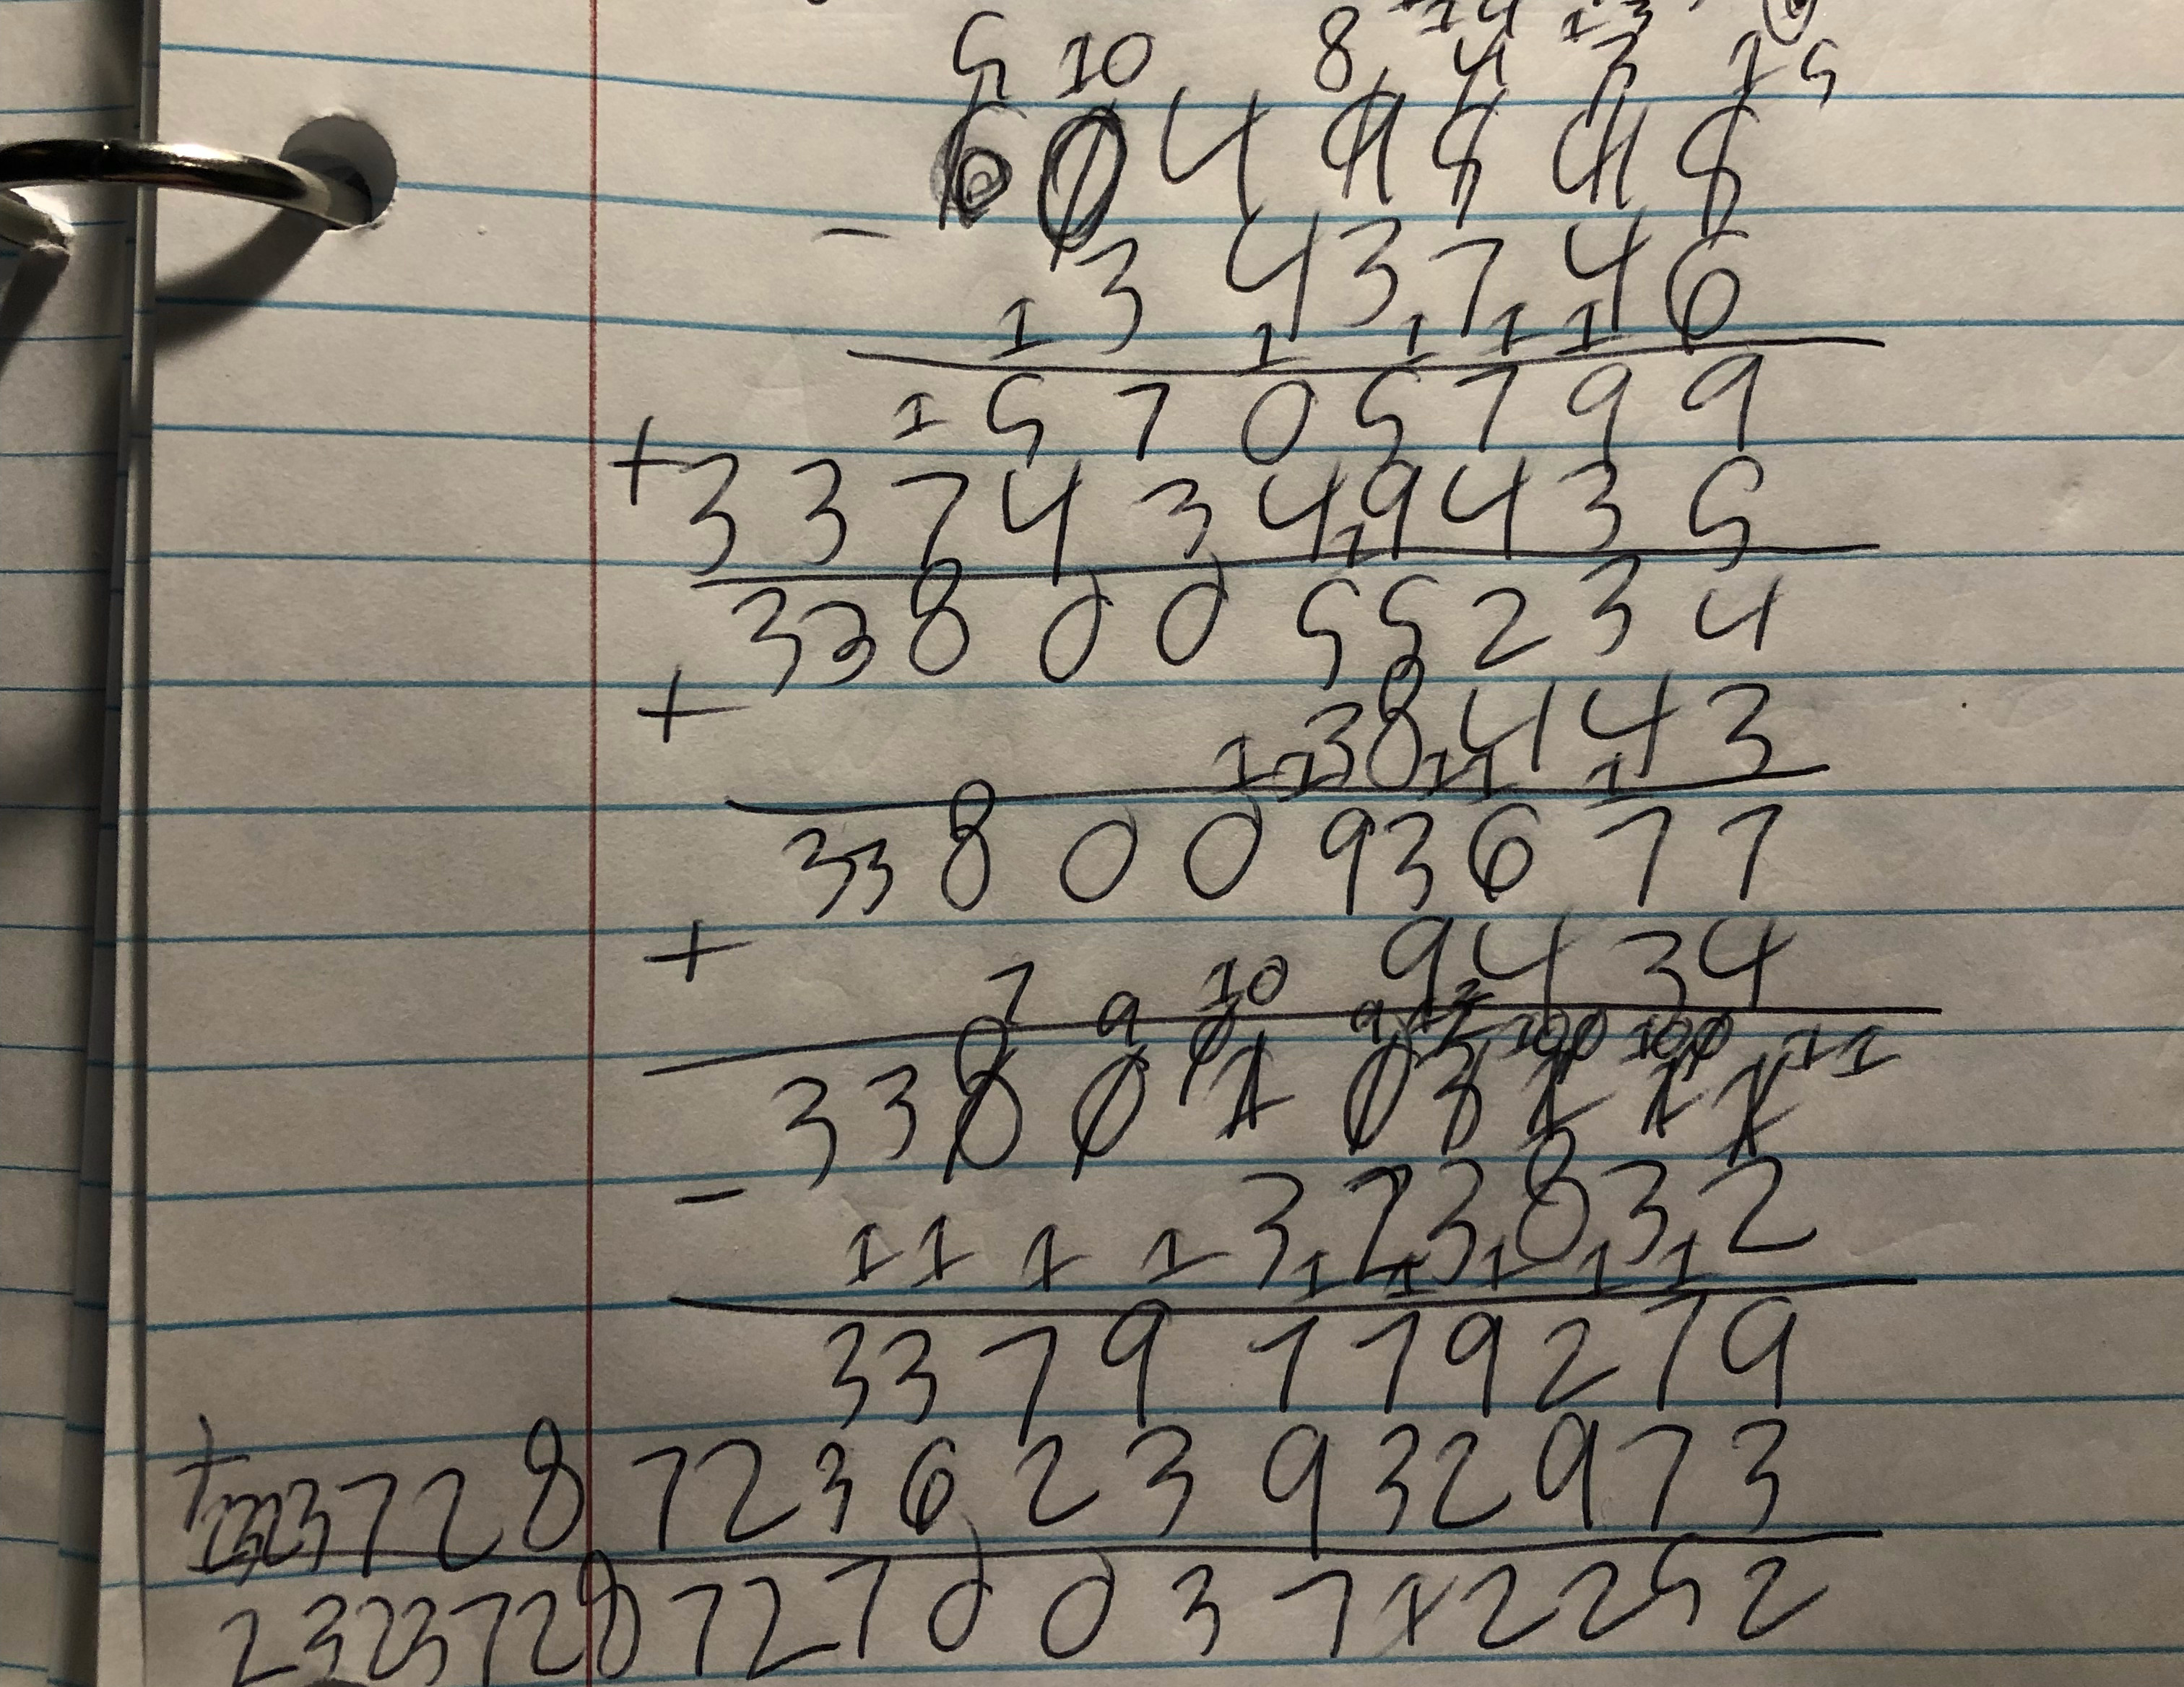 5 10 8 4 3 15
6 0 4 9 5 4 5
- 3 4 3,7,4 6
1 1 1 1 1
1 5 7 0 5 7 9 9
+ 3 3 7 4 3 4,9 4 3 5
3 3 8 0 0 5 5 2 3 4
+ 3 8,4 4 3
3 3 8 0 0 9 3 6 7 7
+ 9 4 3 4
7 9 10 9 12 10 10 11
3 3 8 0 1 0 3 1 1 1
- 3,2 3,8,3,2
1 1 1 1 1 1 1 1 1
3 3 7 9 7 7 9 2 7 9
+ 2 3 2 3 7 2 8 7 2 3 6 2 3 9 3 2 9 7 3
2 3 2 3 7 2 8 7 2 7 0 0 3 7 1 2 2 5 2